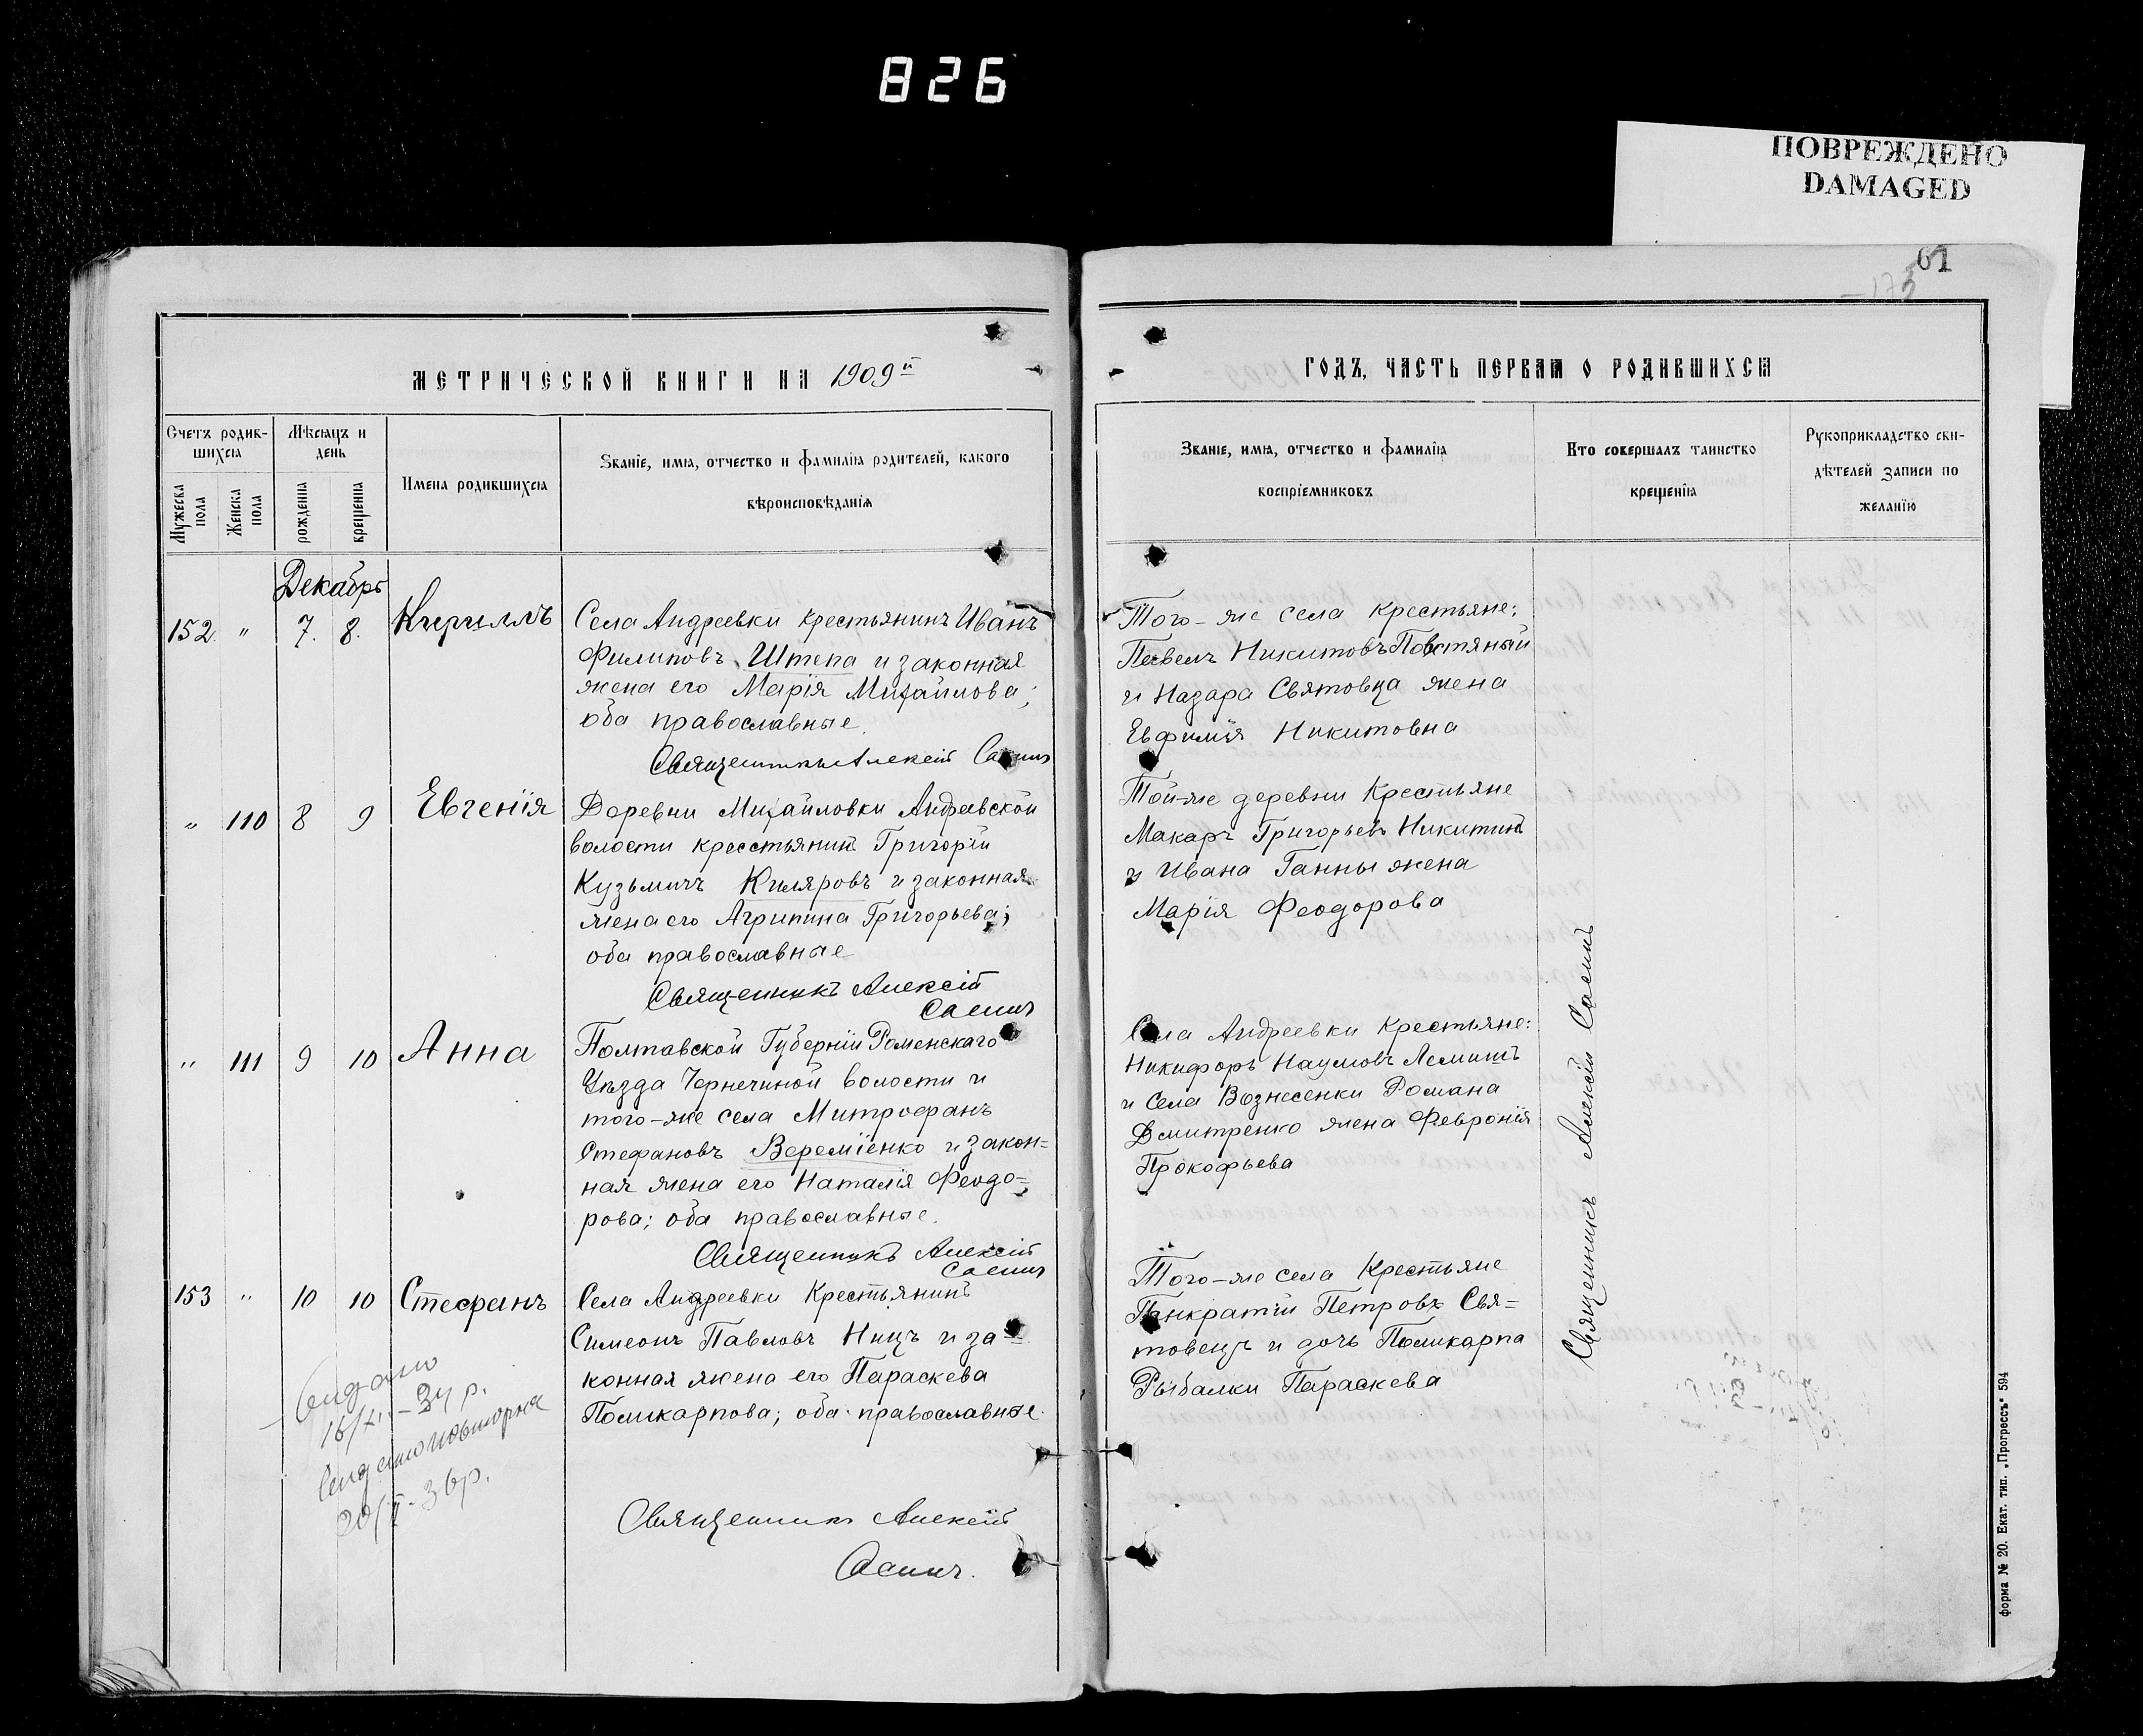 826
ПОВРЕЖДЕНО
DAMAGED
61
МЕТРИЧЕСКОЙ КНИГИ НА 1909й
Счетъ родив-
шихся
Мѣсяцъ и
день
Мужеска
пола
Женска
пола
рожденія
крещенія
Имена родившихся
Званіе, имя, отчество и фамилія родителей, какого
вѣроисповѣданія
Декабрь
152 " 7. 8. Кириллъ
Села Андреевки крестьянинъ Иванъ
Филиповъ Штепа и законная
жена его Марія Михайлова;
оба православные.
Священникъ Алексій Сасинъ
" 110 8 9 Евгенія
Деревни Михайловки Андреевской
волости крестьянинъ Григорій
Кузьмичъ Киляровъ и законная
жена его Агрипина Григорьева;
оба православные
Священникъ Алексій
Сасинъ
" 111 9 10 Анна
Полтавской Губерніи Роменскаго
Уѣзда Чернечиной волости и
того-же села Митрофанъ
Стефановъ Веремѣенко и закон=
ная жена его Наталія Феодо=
рова; оба православные.
Священникъ Алексій
Сасинъ
153 " 10 10 Стефанъ
Села Андреевки Крестьянинъ
Симеонъ Павловъ Ницъ и за=
конная жена его Параскева
Поликарпова; оба православные.
Священникъ Алексій
Сасинъ.
ГОДЪ, ЧАСТЬ ПЕРВАЯ О РОДИВШИХСЯ
Званіе, имя, отчество и фамилія
воспріемниковъ
Кто совершалъ таинство
крещенія
Рукоприкладство сви-
дѣтелей записи по
желанію
Того-же села крестьяне:
Павелъ Никитовъ Повстяный
и Назара Святовца жена
Евфимія Никитовна
Той-же деревни Крестьяне
Макаръ Григорьевъ Никитинъ
и Ивана Ганны жена
Марія Феодорова
Села Андреевки Крестьяне:
Никифоръ Наумовъ Лемишъ
и Села Вознесенки Романа
Дмитренко жена Февронія
Прокофьева
Того-же села Крестьяне
Панкратій Петровъ Свя=
товецъ и дочь Поликарпа
Рыбалки Параскева
Священникъ Алексій Сасинъ
форма № 20. Екат. тип. „Прогрессъ" 594